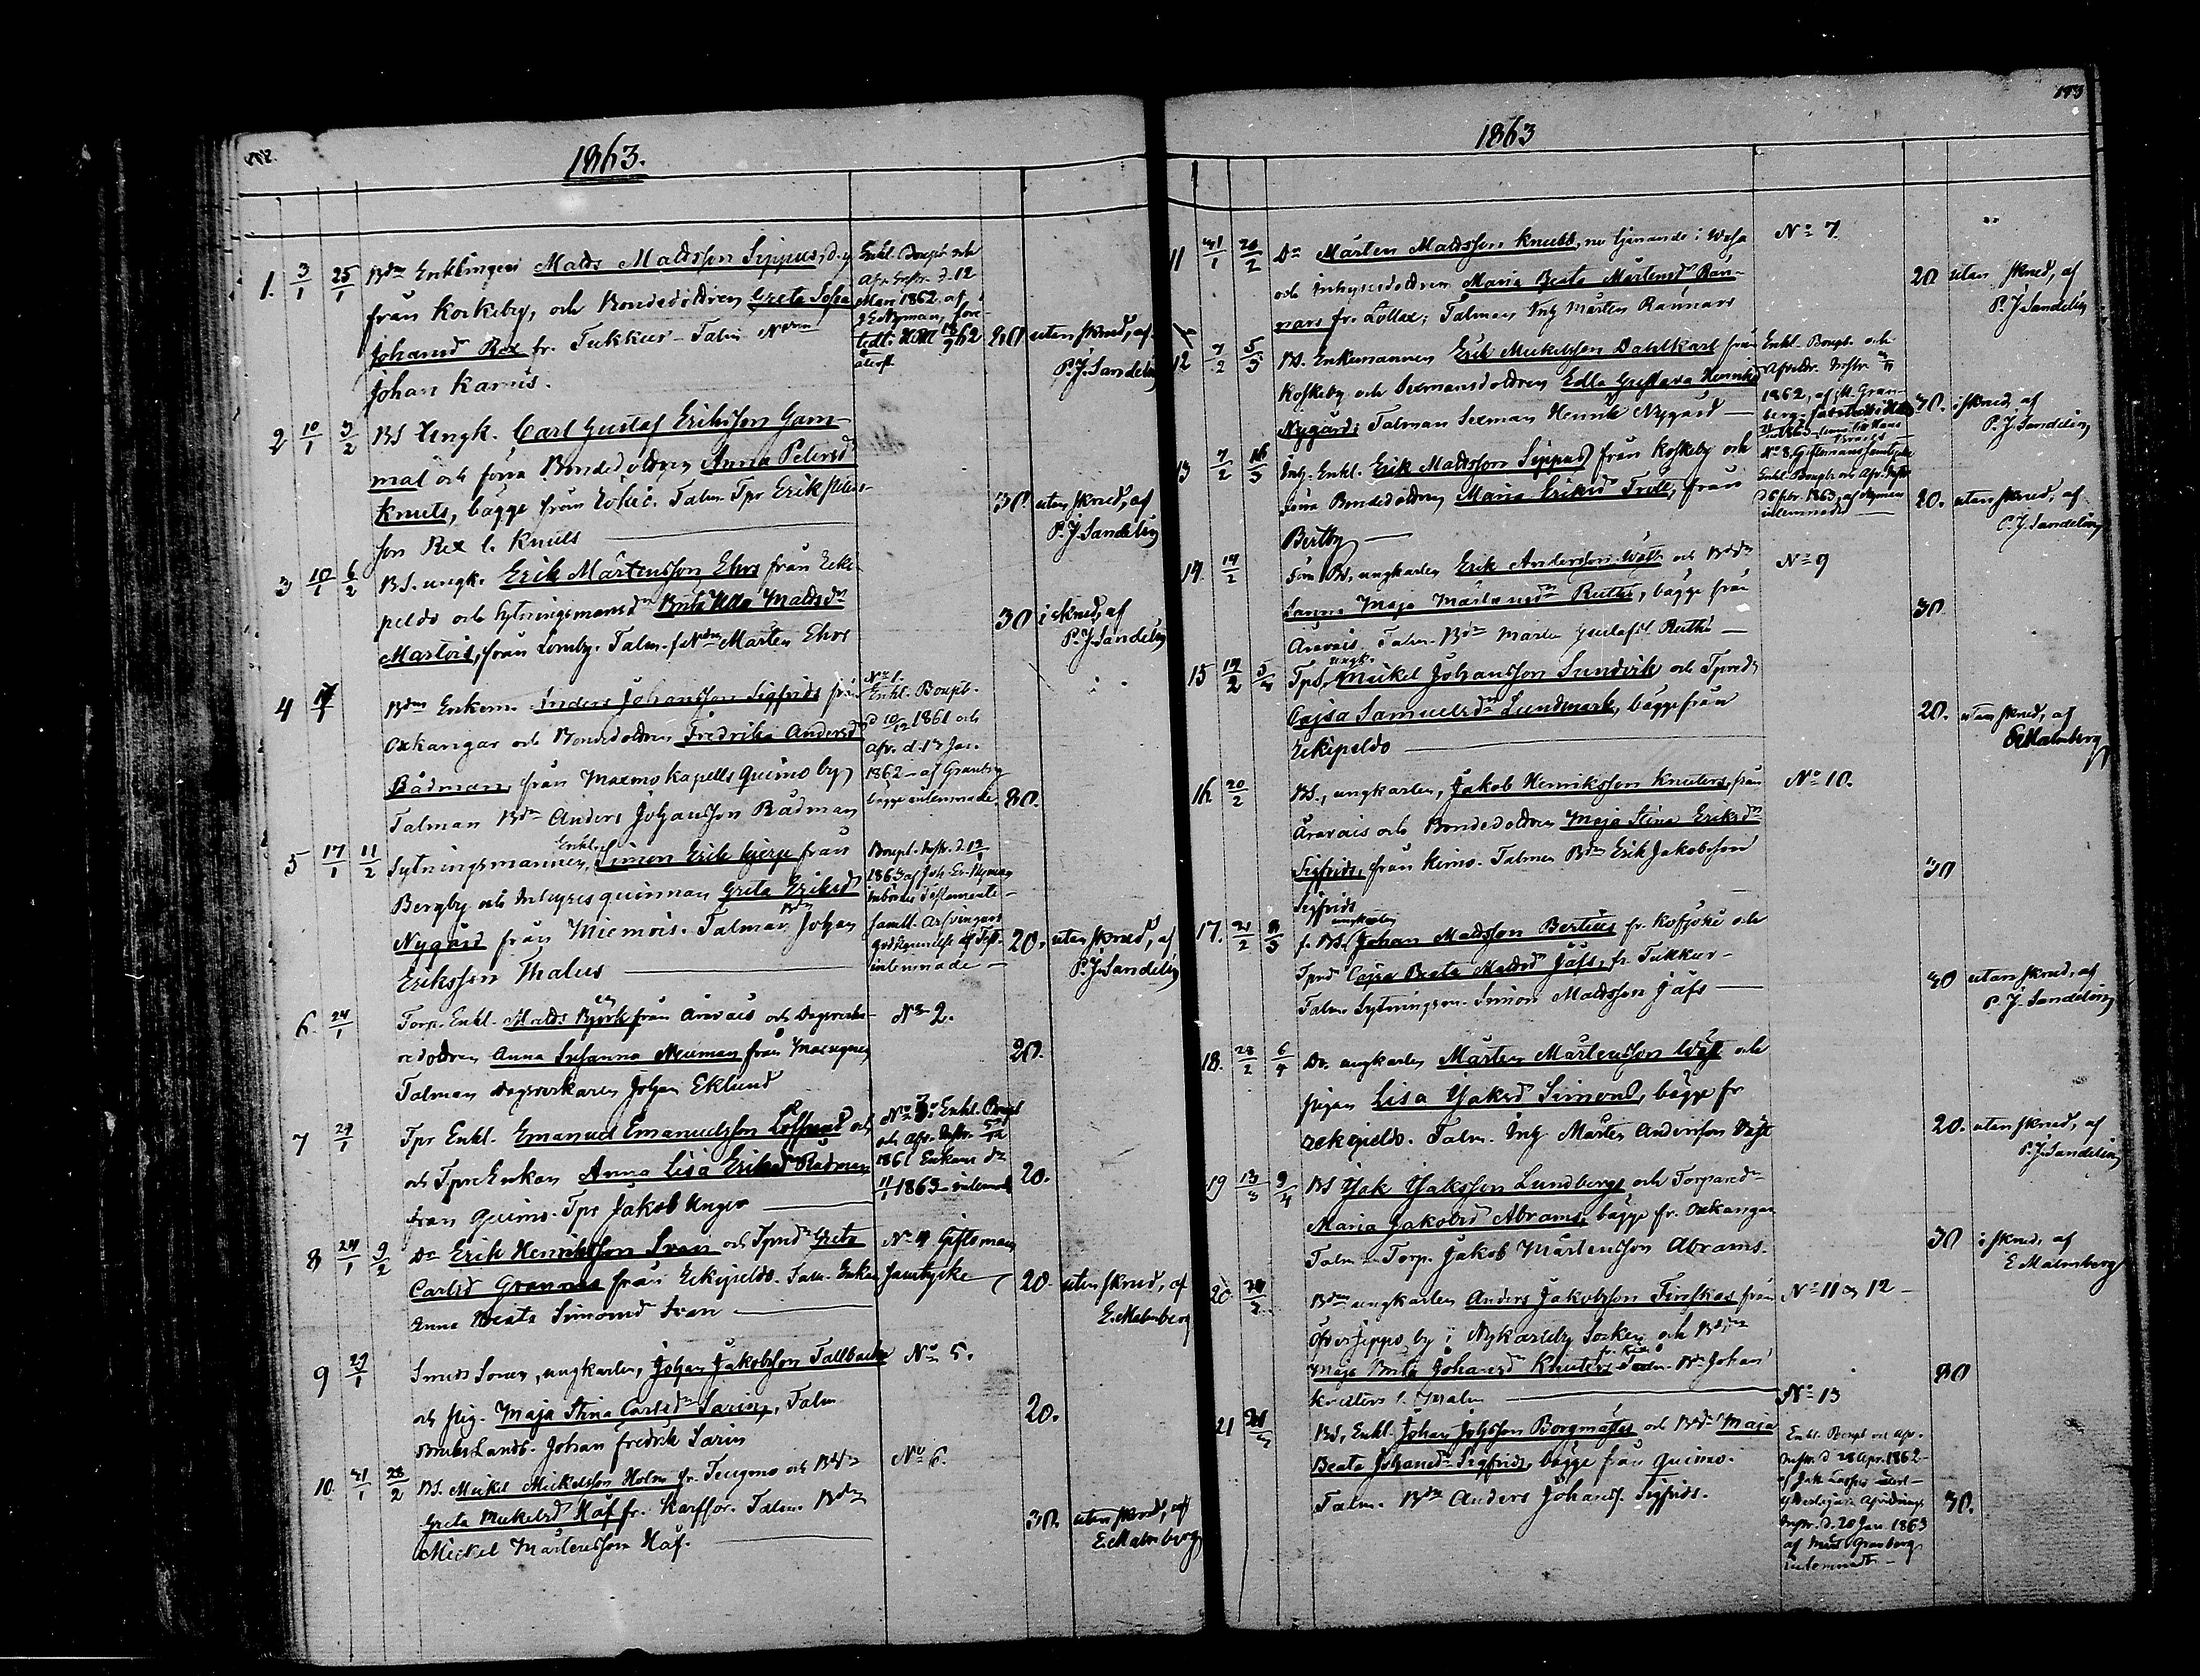 1863.
1. 3/1 25/1 Bdn Enklingen Matts Mattsson Sippus, d.y
från Koskeby, och Bondedottren Greta Sofia
Johansd Rex fr. Tukkur- Talm Ndm
Johan Karnis.
Enkl. Bouppt och
Afv. Instr. d. 12
Mars 1862 af
Nyman, före-
20 utan skrud, af
P. J. Sandelin
2 10/1 3/2 BS Ungk. Carl Gustaf Eriksson Gam-
mal och förra Bondedottren Anna Petersd
Knuts, bägge från Lotlax. Talm. Tpr Erik Peters-
son Rex l. Knuts
30. utan skrud, af
P. J. Sandelin
3 10/1 6/2 BS. ungk. Erik Mårtensson Ehrs från Keki-
peldo och Sytningsmansdn Brita Ulla Mattsdn
Martois, från Lomby. Talm. f. Ndm Mårten Ehrs
30 i skrud, af
P. J. Sandelin
4 17/1 Bdn Enkem. Anders Johansson Sigfrids från
Oxkangar och Bondedottren Fredrika Andersd
Rådman, från Maxmo Kapells Quimo by,
Talman Bdn Anders Johansson Rådman
No 1.
Enkl. Bouppt.
d 10/12 1861 och
Afv. d. 13 Jan.
1862 - af Granberg
bägge inlemnade
30.
5 17/1 11/2 Sytningsmannen, Enkl. Simon Erik Kjerp från
Bergby och Inhyses quinnan Greta Eriksd
Nygård från Miemois. Talman Bdn Johan
Eriksson Malus
Bouppt. Instr. d. 12/1
1863 af Joh. Er. Nyman
inbördes Testamente
samt Arfvingars
godkännelse af Test.
inlemnade
20. utan skrud, af
P. J. Sandelin
6. 24/1 Torp. Enkl. Matts Björk från Oravais och Dagsverka-
redottren Anna Susanna Neuman från
Talman Dagsverkaren Johan Eklund
No 2.
20.
7 24/1 Tpr Enkl. Emanuel Emanuelsson och
och TpreEnkan Anna Lisa Eriksd Rådman
från Quimo. Tpr Jakob Unger
No 3. Enkl. Bouppt
och Afv. Instr.
1861 Enkans dn
11/1 1863 inlemnad
20.
8 24/1 9/2 Do Erik Henriksson Svan och Tprsd Greta
Carlsd Grannas från Kekipeldo. Talm. Enkan
Anna Beata Simonsd Svan
No 4 Giftomans
Samtycke
20. utan skrud, af
E. Malmberg
9 29/1 Smeds Sonen, ungkarlen, Johan Jakobsson Tallbacka
och pig. Maja Stina Carlsdn Sarin, Talm
Bruks Landb. Johan Fredrik Sarin
No 5.
20.
10. 31/1 28/2 BS. Mickel Mickelsson Holm fr. Teugmo och Bdsdn
Greta Mickelsd Häf fr. Karfsor. Talm. Bdn
Mickel Mårtensson Häf.
No 6.
30. utan skrud, af
E. Malmberg
1863
193
11 31/1 20/2 Do Mårten Mattsson Knubb, nu tjenande i Wasa
och inhysesdottren Maria Beata Mårtensd Ran-
nars fr. Lotlax; Talman Inh Mårten Rannars
No 7.
20 utan skrud, af
P. J. Sandelin
12 7/2 5/3 BS. Enkemannen Erik Mickelsson Dahlkarl från
Koskeby och Sexmansdottren Edla Gustava Henriksd
Nygård; Talman Sexman Henrik Nygård
Enkl. Bouppt. och
Afvittr. Instr.
1862, af M. Gran-
berg
30. i skrud, af
P. J. Sandelin
13 7/2 16/3 Inh. Enkl. Erik Mattsson Sippus från Koskeby och
förra Bondedottren Maria Eriksd Troll, från
Bertby
No 8. Giftomans samtycke
Enkl. Bouppt och Afv. Instr
d 6 febr. 1863 af Nyman
inlemnade
20. utan skrud, af
P. J. Sandelin
14. 14/2 Förra BS, ungkarlen Erik Andersson Wäst och Bdsdn
Sanna Maja Mårtensdn Ruths, bägge från
Oravais. Talm. Bdn Mårten Gustafss. Ruths
No 9
30
15 14/2 5/4 TpS, ungk. Mickel Johansson Sundvik och Tprsdn
Cajsa Samuelsdn Lundmark, bägge från
Kekipeldo
20. utan skrud, af
E. Malmberg
16. 20/2 BS., ungkarlen, Jakob Henriksson Knuters, från
Oravais och Bondedottren Maja Stina Eriksdn
Sigfrids, från Kimo. Talman Bdn Erik Jakobsson
Sigfrids
No 10.
30
17. 21/2 f. BS. ungkarlen Johan Mattsson Bertils fr. Kossjöki och
Tprsd Cajsa Beata Mattsd Jäfs, fr. Tukkur-
Talm. Sytningsm. Simon Mattsson Jäfs
30 utan skrud, af
P. J. Sandelin
18. 28/2 6/4 Do. ungkarlen Mårten Mårtensson Wäst och
pigan Lisa Jaksd Simons, bägge fr
Kekipeldo. Talm. Inh Mårten Andersson Wäst
20. utan skrud, af
P. J. Sandelin
19 13/3 9/4 BS Jak Jaksson Lundberg och Torparedn
Maria Jakobsd Abrams, bägge fr. Oxkangar
Talm. Torp. Jakob Mårtensson Abrams.
30 i skrud, af
E Malmberg
20 Bdn ungkarlen Anders Jakobsson Finskas från
Öfverjeppo by i Nykarleby Socken och Bdsdn
Maja Brita Johansd Knuters fr. Kimo Talm. Bdn Johan
Knuters l.
No 11 o 12
30
21 Bd, Enkl. Johan Johsson Borgmästar och Bdsdn Maja
Beata Johansdn Sigfrids, bägge från Quimo.
Talm. Bdn Anders Johanss. Sigfrids.
No 13
Enkl. Bouppt och Afv.
Instr. d 28 Apr. 1862
Instr. d. 20 Jan. 1863
af Granberg
inlemnadt
30.